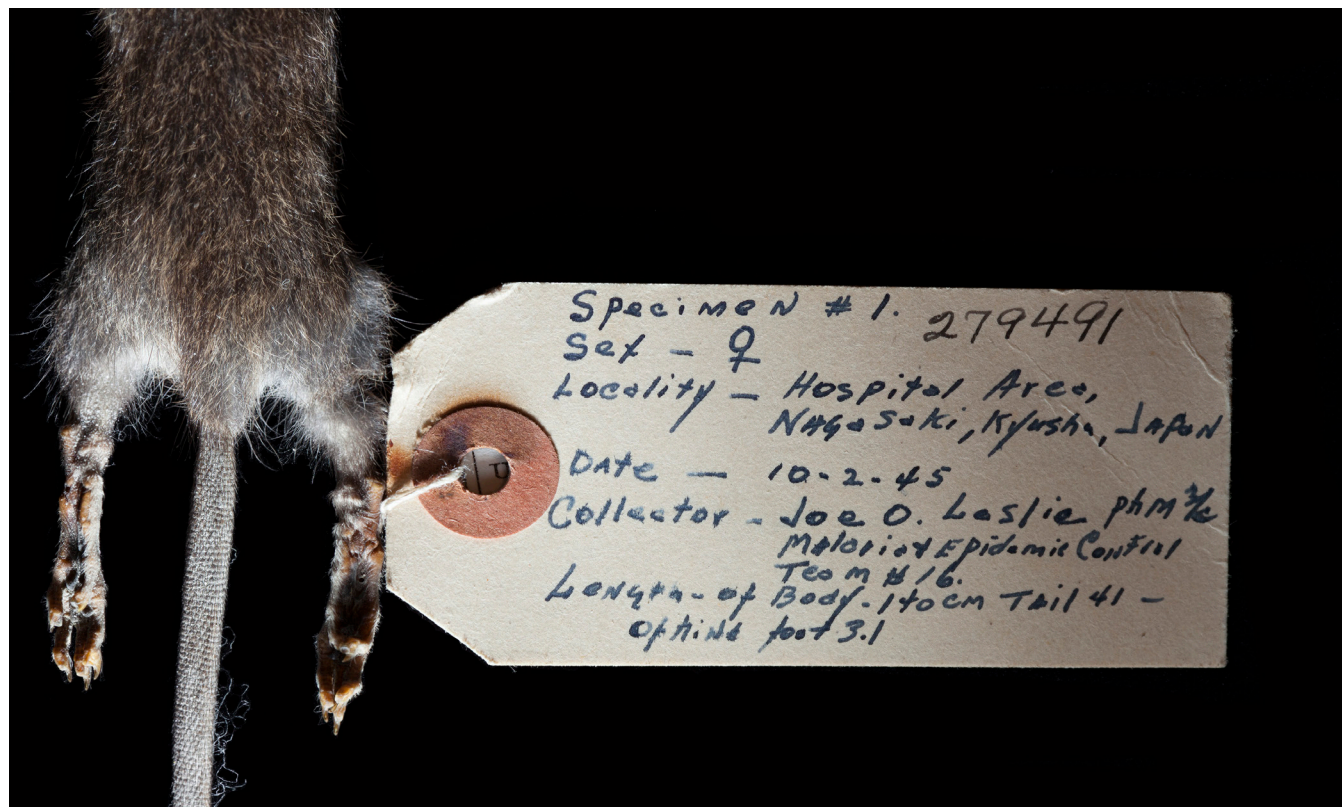 Specimen # 1. 279491
Sex - ♀
Locality - Hospital Area,
Nagasaki, Kyushu, Japan
Date - 10-2-45
Collector - Joe O. Leslie PhM 3/c
Malaria & Epidemic Control
Team # 16.
Length - of Body - 140 cm Tail 41 -
of hind foot 3.1